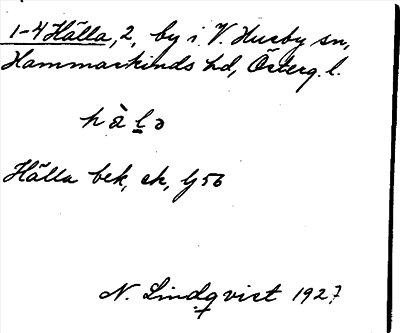 1-4 Hälla, 2, by i V. Husby sn,
Hammarkinds hd, Österg. l.
hàlə
Hälla bek, ek, Lj 56
N. Lindqvist 1927